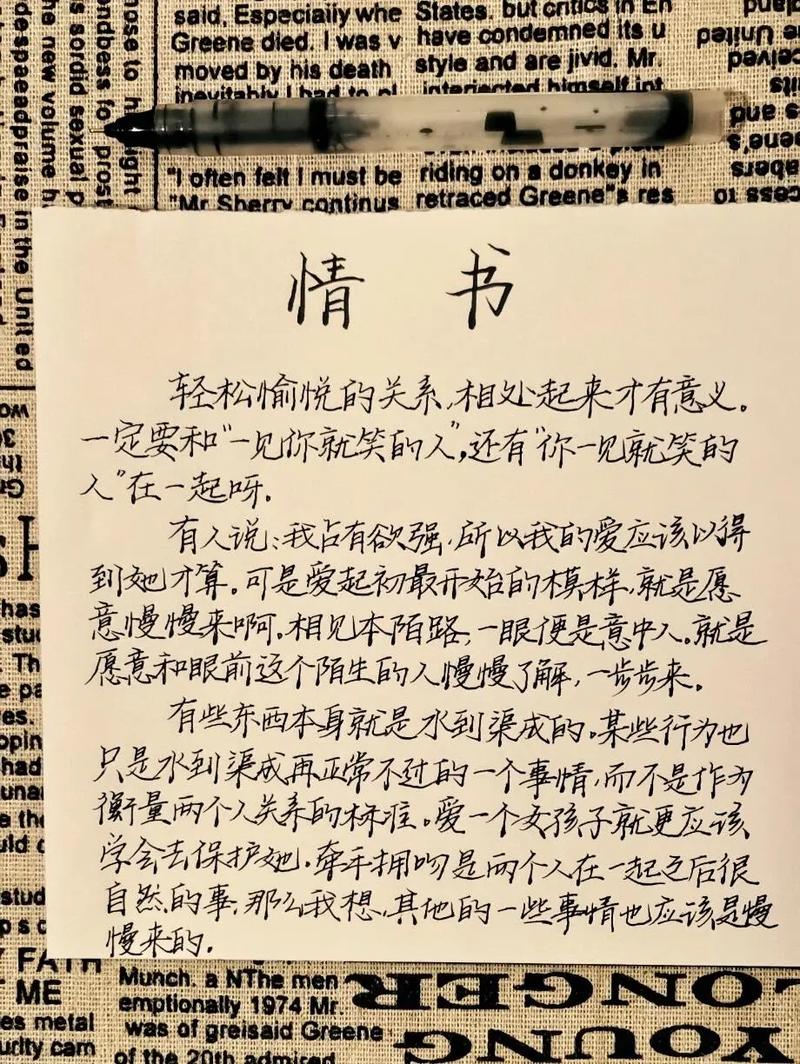 said, Especially whe
Greene died. I was v
moved by his death
inevitably I had to pl
States. but critics in En
have condemned its u
style and are jivid. Mr.
interjected himself int
"I often felt I must be
"Mr Sherry continus
riding on a donkey in
retraced Greene"s res
情书
轻松愉悦的关系,相处起来才有意义。
一定要和“一见你就笑的人”,还有“你一见就笑的
人”在一起呀.
有人说:我占有欲强,所以我的爱应该以得
到她才算.可是爱起初最开始的模样,就是愿
意慢慢来啊.相见本陌路,一眼便是意中人.就是
愿意和眼前这个陌生的人慢慢了解,一步步来.
有些东西本身就是水到渠成的.某些行为也
只是水到渠成再正常不过的一个事情,而不是作为
衡量两个人关系的标准.爱一个女孩子就更应该
学会去保护她.牵手拥吻是两个人在一起之后很
自然的事,那么我想,其他的一些事情也应该是慢
慢来的.
FATH
ME
es metal
urity cam
Munch. a NThe men
emptionally 1974 Mr.
was of greisaid Greene
of the 20th admired
LONGER
YOUNG